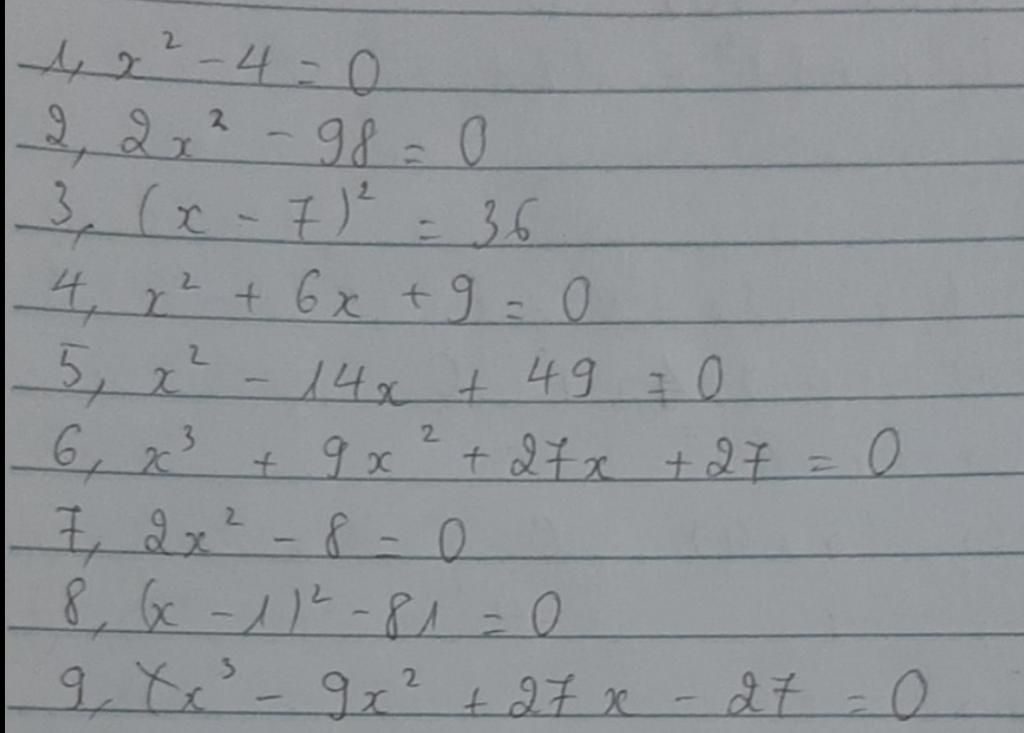 1, x² - 4 = 0
2, 2x² - 98 = 0
3, (x - 7)² = 36
4, x² + 6x + 9 = 0
5, x² - 14x + 49 = 0
6, x³ + 9x² + 27x + 27 = 0
7, 2x² - 8 = 0
8, (x - 1)² - 81 = 0
9, x³ - 9x² + 27x - 27 = 0